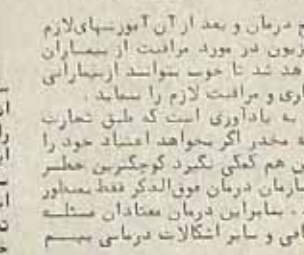 ح درمان و بعد از آن آموزشهای لازم
زیون در مورد مراقبت از بیماران
هد شد تا خوب بتوانند از بیمارانی
اری و مراقبت لازم را بنماید .
به یادآوری است که طبق تجارب
ه مخدر اگر بخواهد اعتیاد خود را
س هم کمکی نگیرد کوچکترین خطر
ازمان درمان فوق‌الذکر فقط بمنظور
، بنابراین درمان معتادان مسئله
افی و سایر اشکالات درمانی